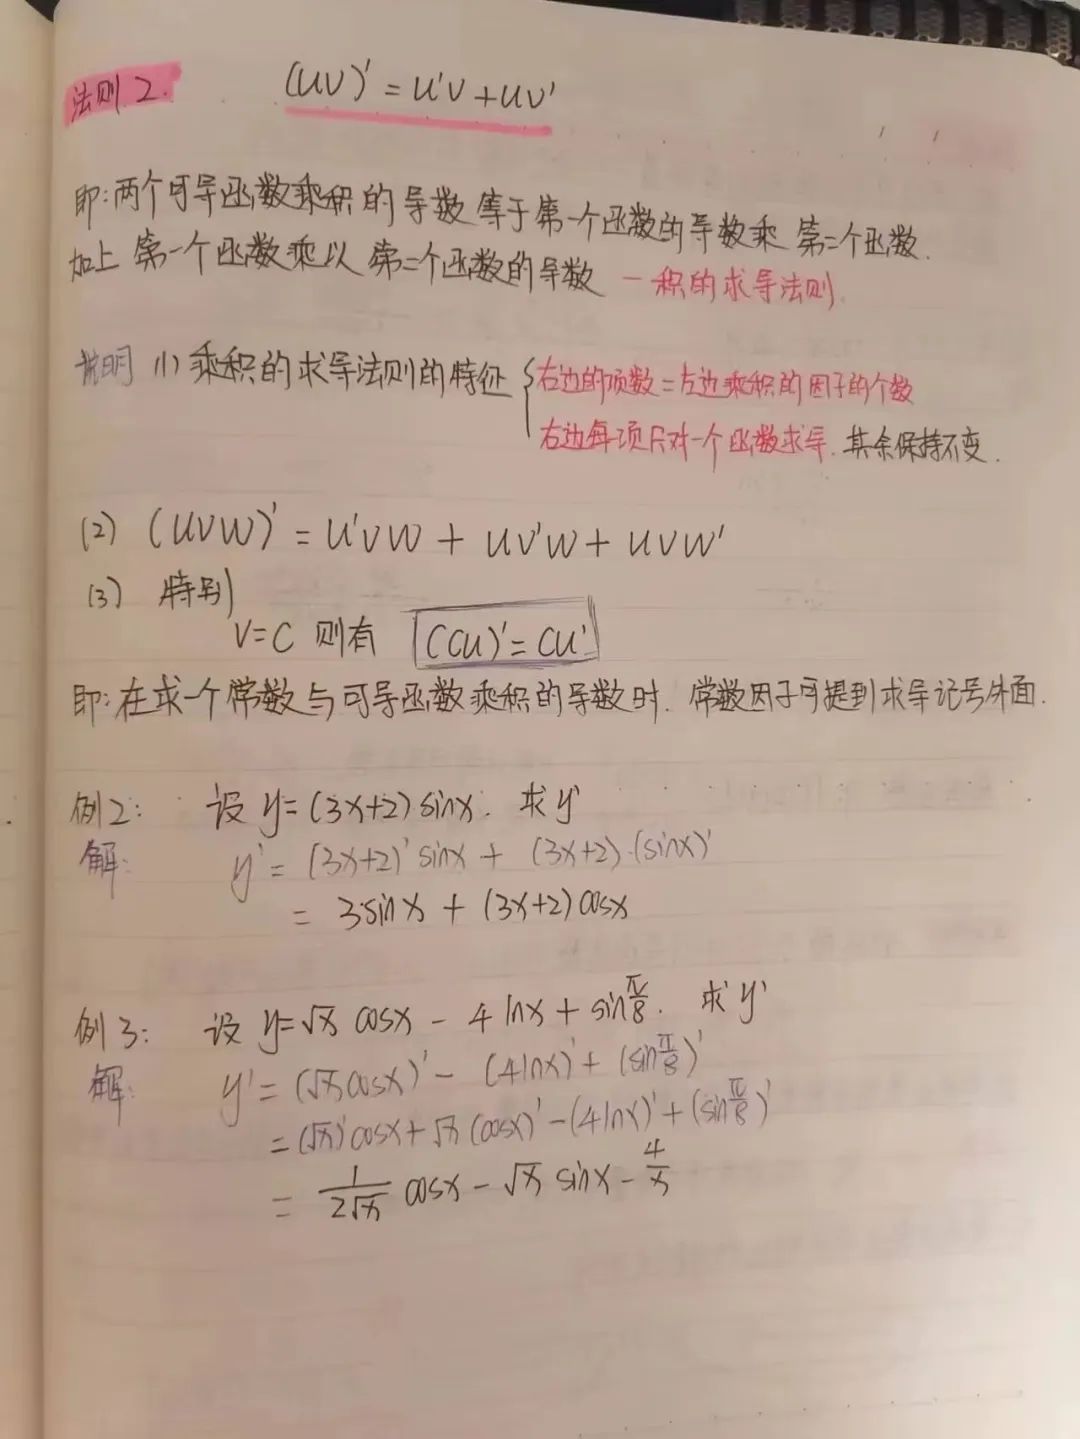 法则2. (uv)'=u'v+uv'
即:两个可导函数乘积的导数等于第一个函数的导数乘第二个函数.
加上第一个函数乘以第二个函数的导数 —积的求导法则.
说明 (1) 乘积的求导法则的特征 { 右边的项数=左边乘积的因子的个数
右边每项只对一个函数求导.其余保持不变.
(2) (uvw)'=u'vw+uv'w+uvw'
(3) 特别
v=C 则有 (Cu)'=Cu'
即:在求一个常数与可导函数乘积的导数时.常数因子可提到求导记号外面.
例2: 设 y=(3x+2)sinx. 求y'
解: y'=(3x+2)'sinx+(3x+2)·(sinx)'
=3sinx+(3x+2)cosx
例3: 设 y=√x cosx-4lnx+sinπ/8. 求y'
解: y'=(√x cosx)'-(4lnx)'+(sinπ/8)'
=(√x)'cosx+√x(cosx)'-(4lnx)'+(sinπ/8)'
=1/(2√x) cosx-√x sinx-4/x